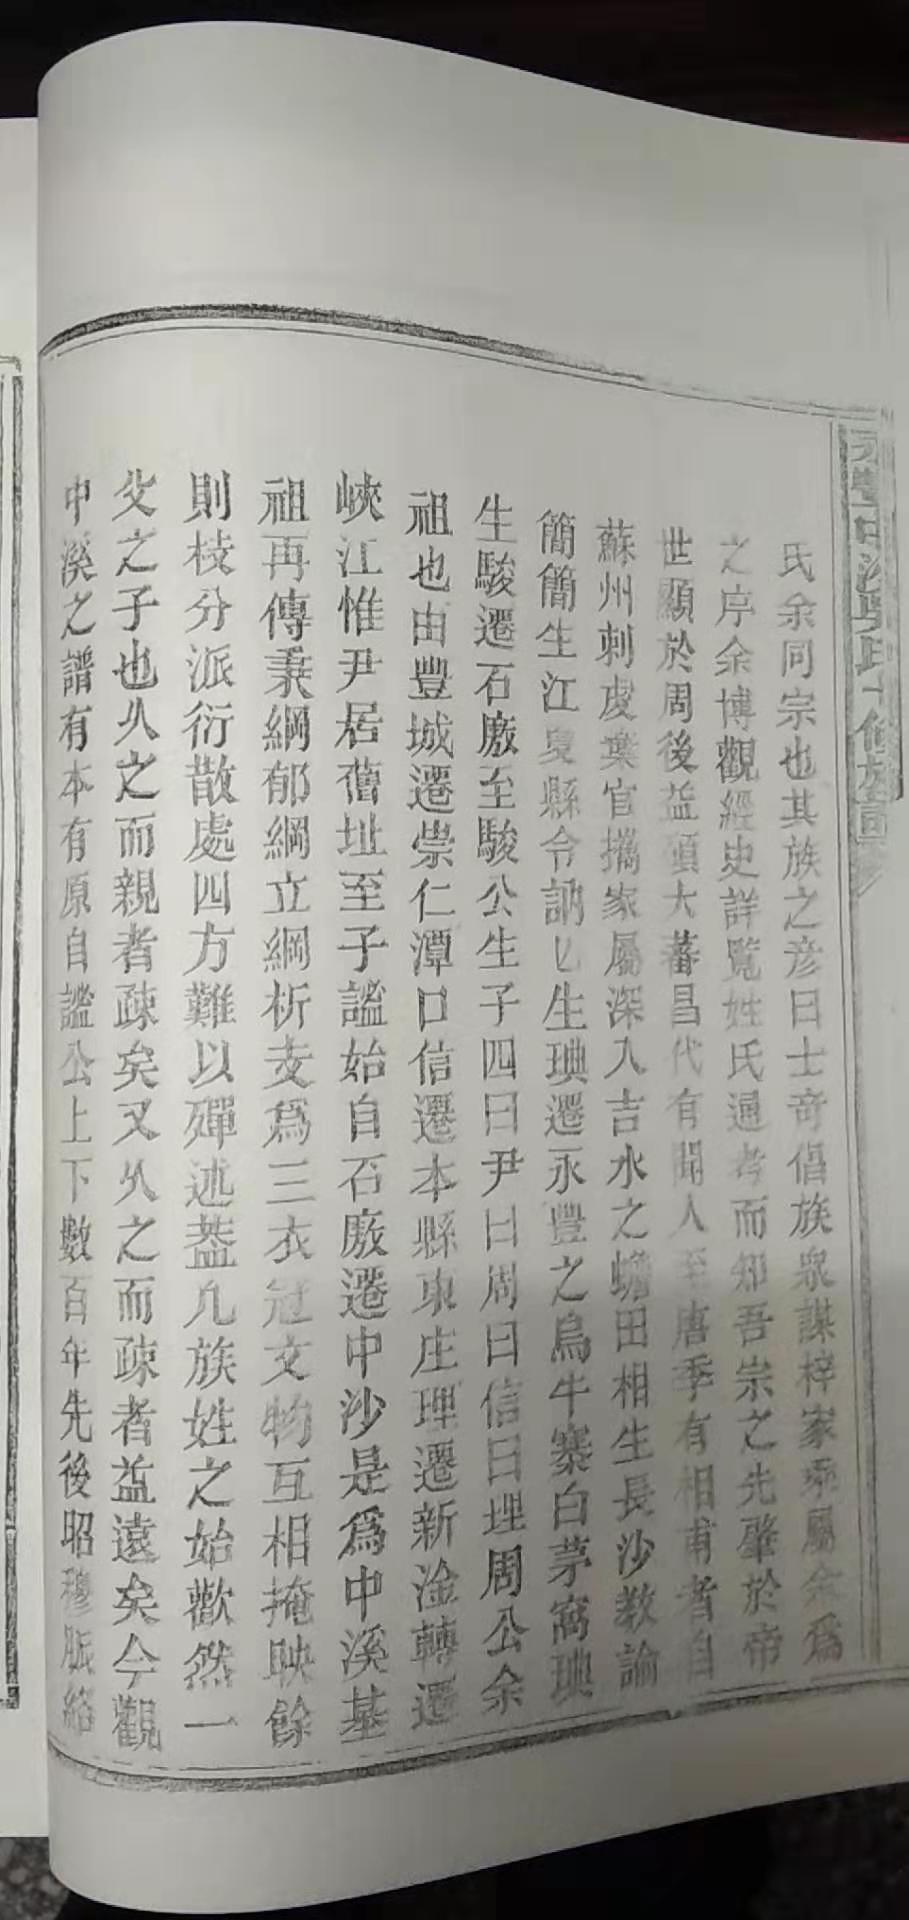 永豐中沙吳氏十修族譜
氏余同宗也其族之彥曰士奇倡族衆謀梓家乘屬余爲
之序余博觀經史詳覽姓氏通考而知吾宗之先肇於帝
世顯於周後益碩大蕃昌代有聞人至唐季有相甫者自
蘇州刺虔棄官攜家屬深入吉水之蟾田相生長沙教諭
簡簡生江夏縣令訥匕生琠遷永豐之烏牛寨白茅窩琠
生駿遷石廒至駿公生子四曰尹曰周曰信曰理周公余
祖也由豐城遷崇仁潭口信遷本縣東庄理遷新淦轉遷
峽江惟尹居舊址至子謐始自石廒遷中沙是爲中溪基
祖再傳秉綱郁綱立綱析支爲三衣冠文物互相掩映餘
則枝分派衍散處四方難以殫述葢凡族姓之始歡然一
父之子也久之而親者疎矣又久之而疎者益遠矣今觀
中溪之譜有本有原自謐公上下數百年先後昭穆脈絡